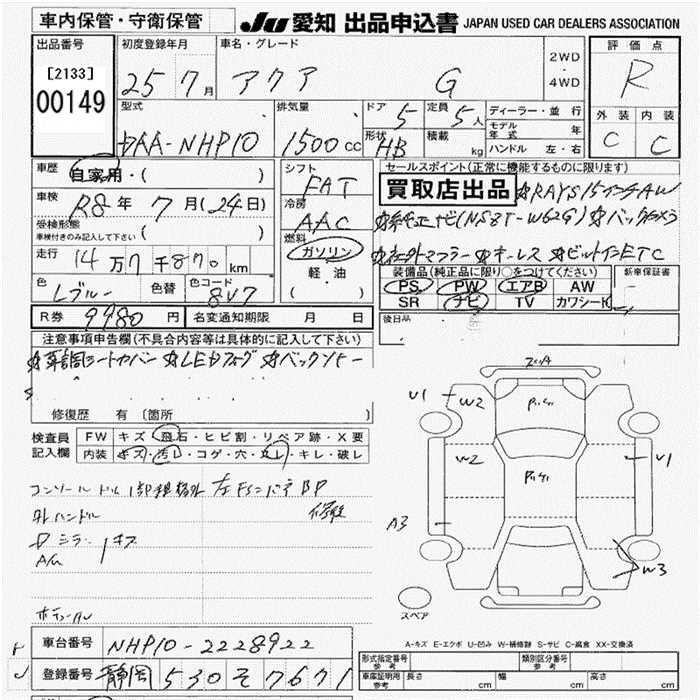 車内保管・守衛保管
JU 愛知 出品申込書 JAPAN USED CAR DEALERS ASSOCIATION
出品番号 初度登録年月 車名・グレード 2WD・4WD 評価点
[2133] 00149 25 7月 アクア G R
型式 排気量 ドア 5 定員 5人 ディーラー・並行 外装 内装
DAA-NHP10 1500cc 形状 HB 積載 kg モデル年式 年 C C
ハンドル 左・右
車歴 自家用・( ) シフト FAT セールスポイント(正常に機能するものに限ります)
買取店出品 ☆RAYS15インチAW
車検 R8年 7月(24日) 冷房 AAC
受検形態 車検付きのみ記入して下さい ( )
☆純正ナビ(NSZT-W62G) ☆バックカメラ
走行 14万7千870km 燃料 ガソリン・軽油 ( )
☆社外マフラー ☆キーレス ☆ビルトインETC
色 Lブルー 色替 色コード 8V7
装備品(純正品に限り○をつけてください) 新車保証書
PS PW エアB AW
SR ナビ TV カワシート
R券 9980円 名変通知期限 月 日
後日品
注意事項申告欄(不具合内容等は具体的に記入して下さい)
☆革調シートカバー ☆LEDフォグ ☆バックソナー
修復歴 有 (箇所 )
検査員記入欄 FW キズ・飛石・ヒビ割・リペア跡・X要
内装 キズ・汚レ・コゲ・穴・スレ・キレ・破レ
左Fフェンダ BP
外ハンドル 修整
Dミラー キズ
A/W
スペア
W2 W2 A3 W3
A-キズ E-エクボ U-凹み W-補修跡 S-サビ C-腐食 XX-交換済
車台番号 NHP10-2228922
登録番号 静岡 530 そ 7671
型式指定番号 参考 類別区分番号 参考
車庫証明用 参考 長さ cm 幅 cm 高さ cm